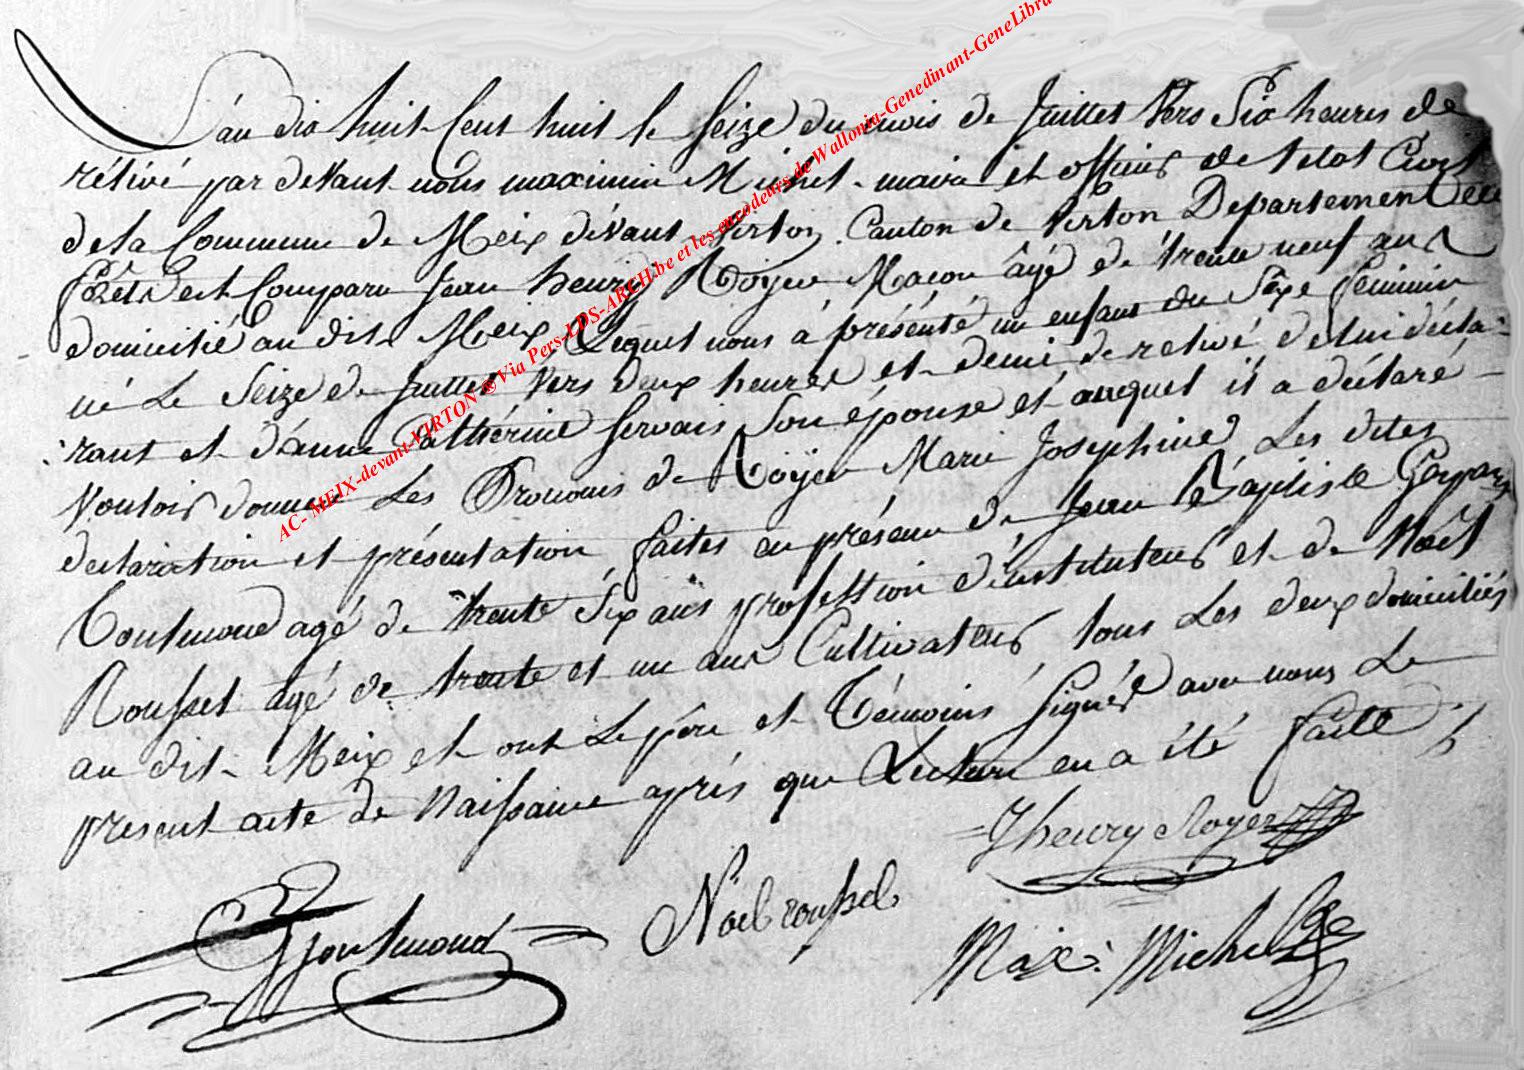 L'an dix huit Cent huit le Seize du mois de Juillet Vers Six heures de
rélivé par devant nous maximin Michel maire et officier de l'etat Civil
de la Commune de Meix dévant Virton Canton de Virton Departement des
forêts est Comparu Jean henry Roÿer Macon âgé de trente neuf ans
domicilié au dit Meix Lequel nous a présénté un enfant du Séxe feminin
né Le Seize de Juillet Vers deux heures et demi de relivé de lui décla-
rant et d'anne Catthérine Servais Son épouse et auquel il a déclaré
Vouloir donner Les Prenoms de Roÿer Marie Joséphine Les dites
declaration et présentation faites en présence de Jean Baptiste Gaspard
Toutmond agé de trente Six ans profession d'instituteur et de Noêl
Roussel agé de trente et un ans Cultivateur tous Les deux domiciliés
au dit Meix et ont Le pére et Témoins Signés avec nous Le
present acte de Naissance aprés que Lecture en a été faitte
Jhenry Royer
Noel roussel
Max: Michel
AC- MEIX-devant-VIRTON © Via Pers-LDS-ARCH.be et les encodeurs de Wallonia-Genedinant-GeneLibra